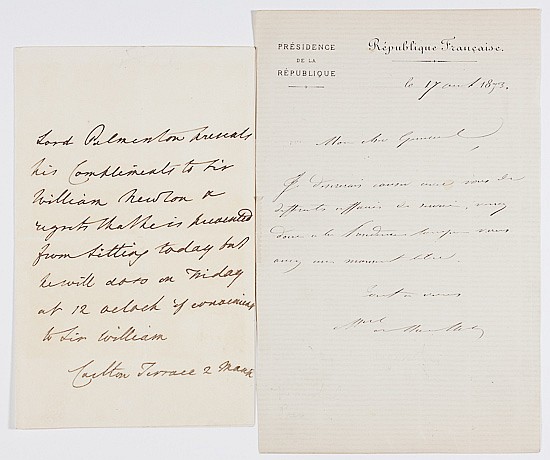 Lord Palmerston presents
his Compliments to Sir
William Newton &
regrets that he is prevented
from Sitting today but
he will do so on Friday
at 12 oclock if convenient
to Sir William
Carlton Terrace 2 March
PRÉSIDENCE
DE LA
RÉPUBLIQUE
République Française.
le 17 1873.
Mon cher Général,
Je causer avec vous de
différents affaires de service, venez
donc à la vous
avez un moment libre.
Tout à vous
Mal de Mac Mahon